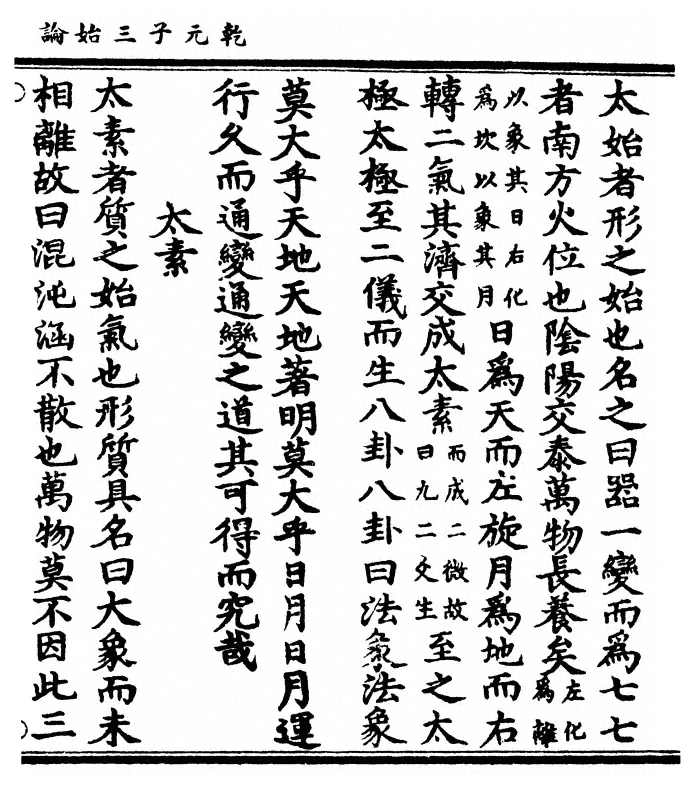 乾元子三始論
太始者形之始也名之曰噐一變而爲七七
者南方火位也陰陽交泰萬物長養矣左化爲離
以象其日右化爲坎以象其月日爲天而左旋月爲地而右
轉二氣其濟交成太素而成二微故曰九二爻生至之太
極太極至二儀而生八卦八卦曰法象法象
莫大乎天地天地著明莫大乎日月日月運
行久而通變通變之道其可得而究哉
太素
太素者質之始氣也形質具名曰大象而未
相離故曰混沌涵不散也萬物莫不因此三